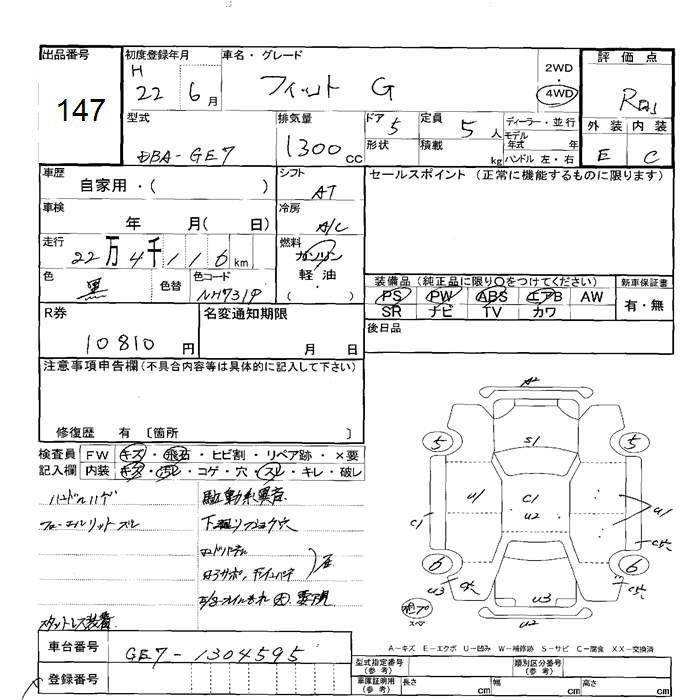 出品番号
147
初度登録年月
H 22 6月
車名・グレード
フィット G
2WD
4WD
評価点
R
型式
DBA-GE7
排気量
1300cc
ドア 5
形状
定員 5人
積載 kg
ディーラー・並行
モデル年式 年
ハンドル 左・右
外装 内装
E C
車歴
自家用・( )
シフト
AT
セールスポイント (正常に機能するものに限ります)
車検
年 月( 日)
冷房
A/C
走行
22万4千116km
燃料
ガソリン
軽油
( )
色
黒
色替
色コード
NH731P
装備品(純正品に限り○をつけてください)
PS PW ABS エアB AW
SR ナビ TV カワ
新車保証書
有・無
R券
10810円
名変通知期限
月 日
後日品
注意事項申告欄(不具合内容等は具体的に記入して下さい)
修復歴 有 〔箇所 〕
検査員記入欄
FW キズ・飛石・ヒビ割・リペア跡・×要
内装 キズ・汚レ・コゲ・穴・スレ・キレ・破レ
ハンドルハゲ
駆動系異音
フューエルリットズレ
スタットレス装着
A2
S1
5
5
U1
C1
U2
C1
U1
6
6
U3
U3
U2
スペア
A-キズ E-エクボ U-凹み W-補修跡 S-サビ C-腐食 XX-交換済
車台番号
GE7-1304595
登録番号
型式指定番号(参考)
類別区分番号(参考)
車庫証明用(参考)
長さ cm 幅 cm 高さ cm